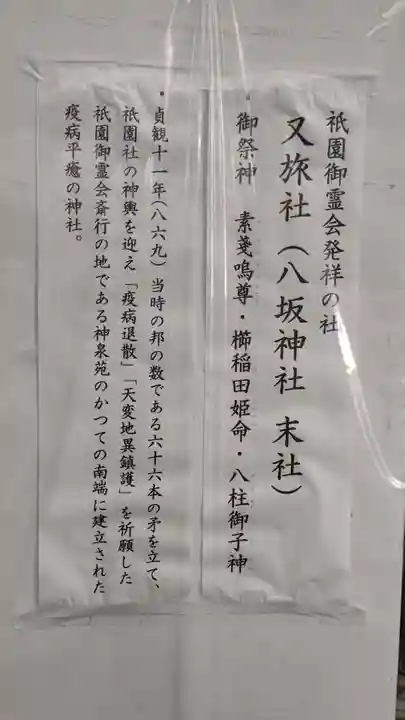 祇園御霊会発祥の社
又旅社（八坂神社 末社）
・御祭神 素戔嗚尊・櫛稲田姫命・八柱御子神
・貞観十一年（八六九）当時の邦の数である六十六本の矛を立て、
祇園社の神輿を迎え「疫病退散」「天変地異鎮護」を祈願した
祇園御霊会斎行の地である神泉苑のかつての南端に建立された
疫病平癒の神社。